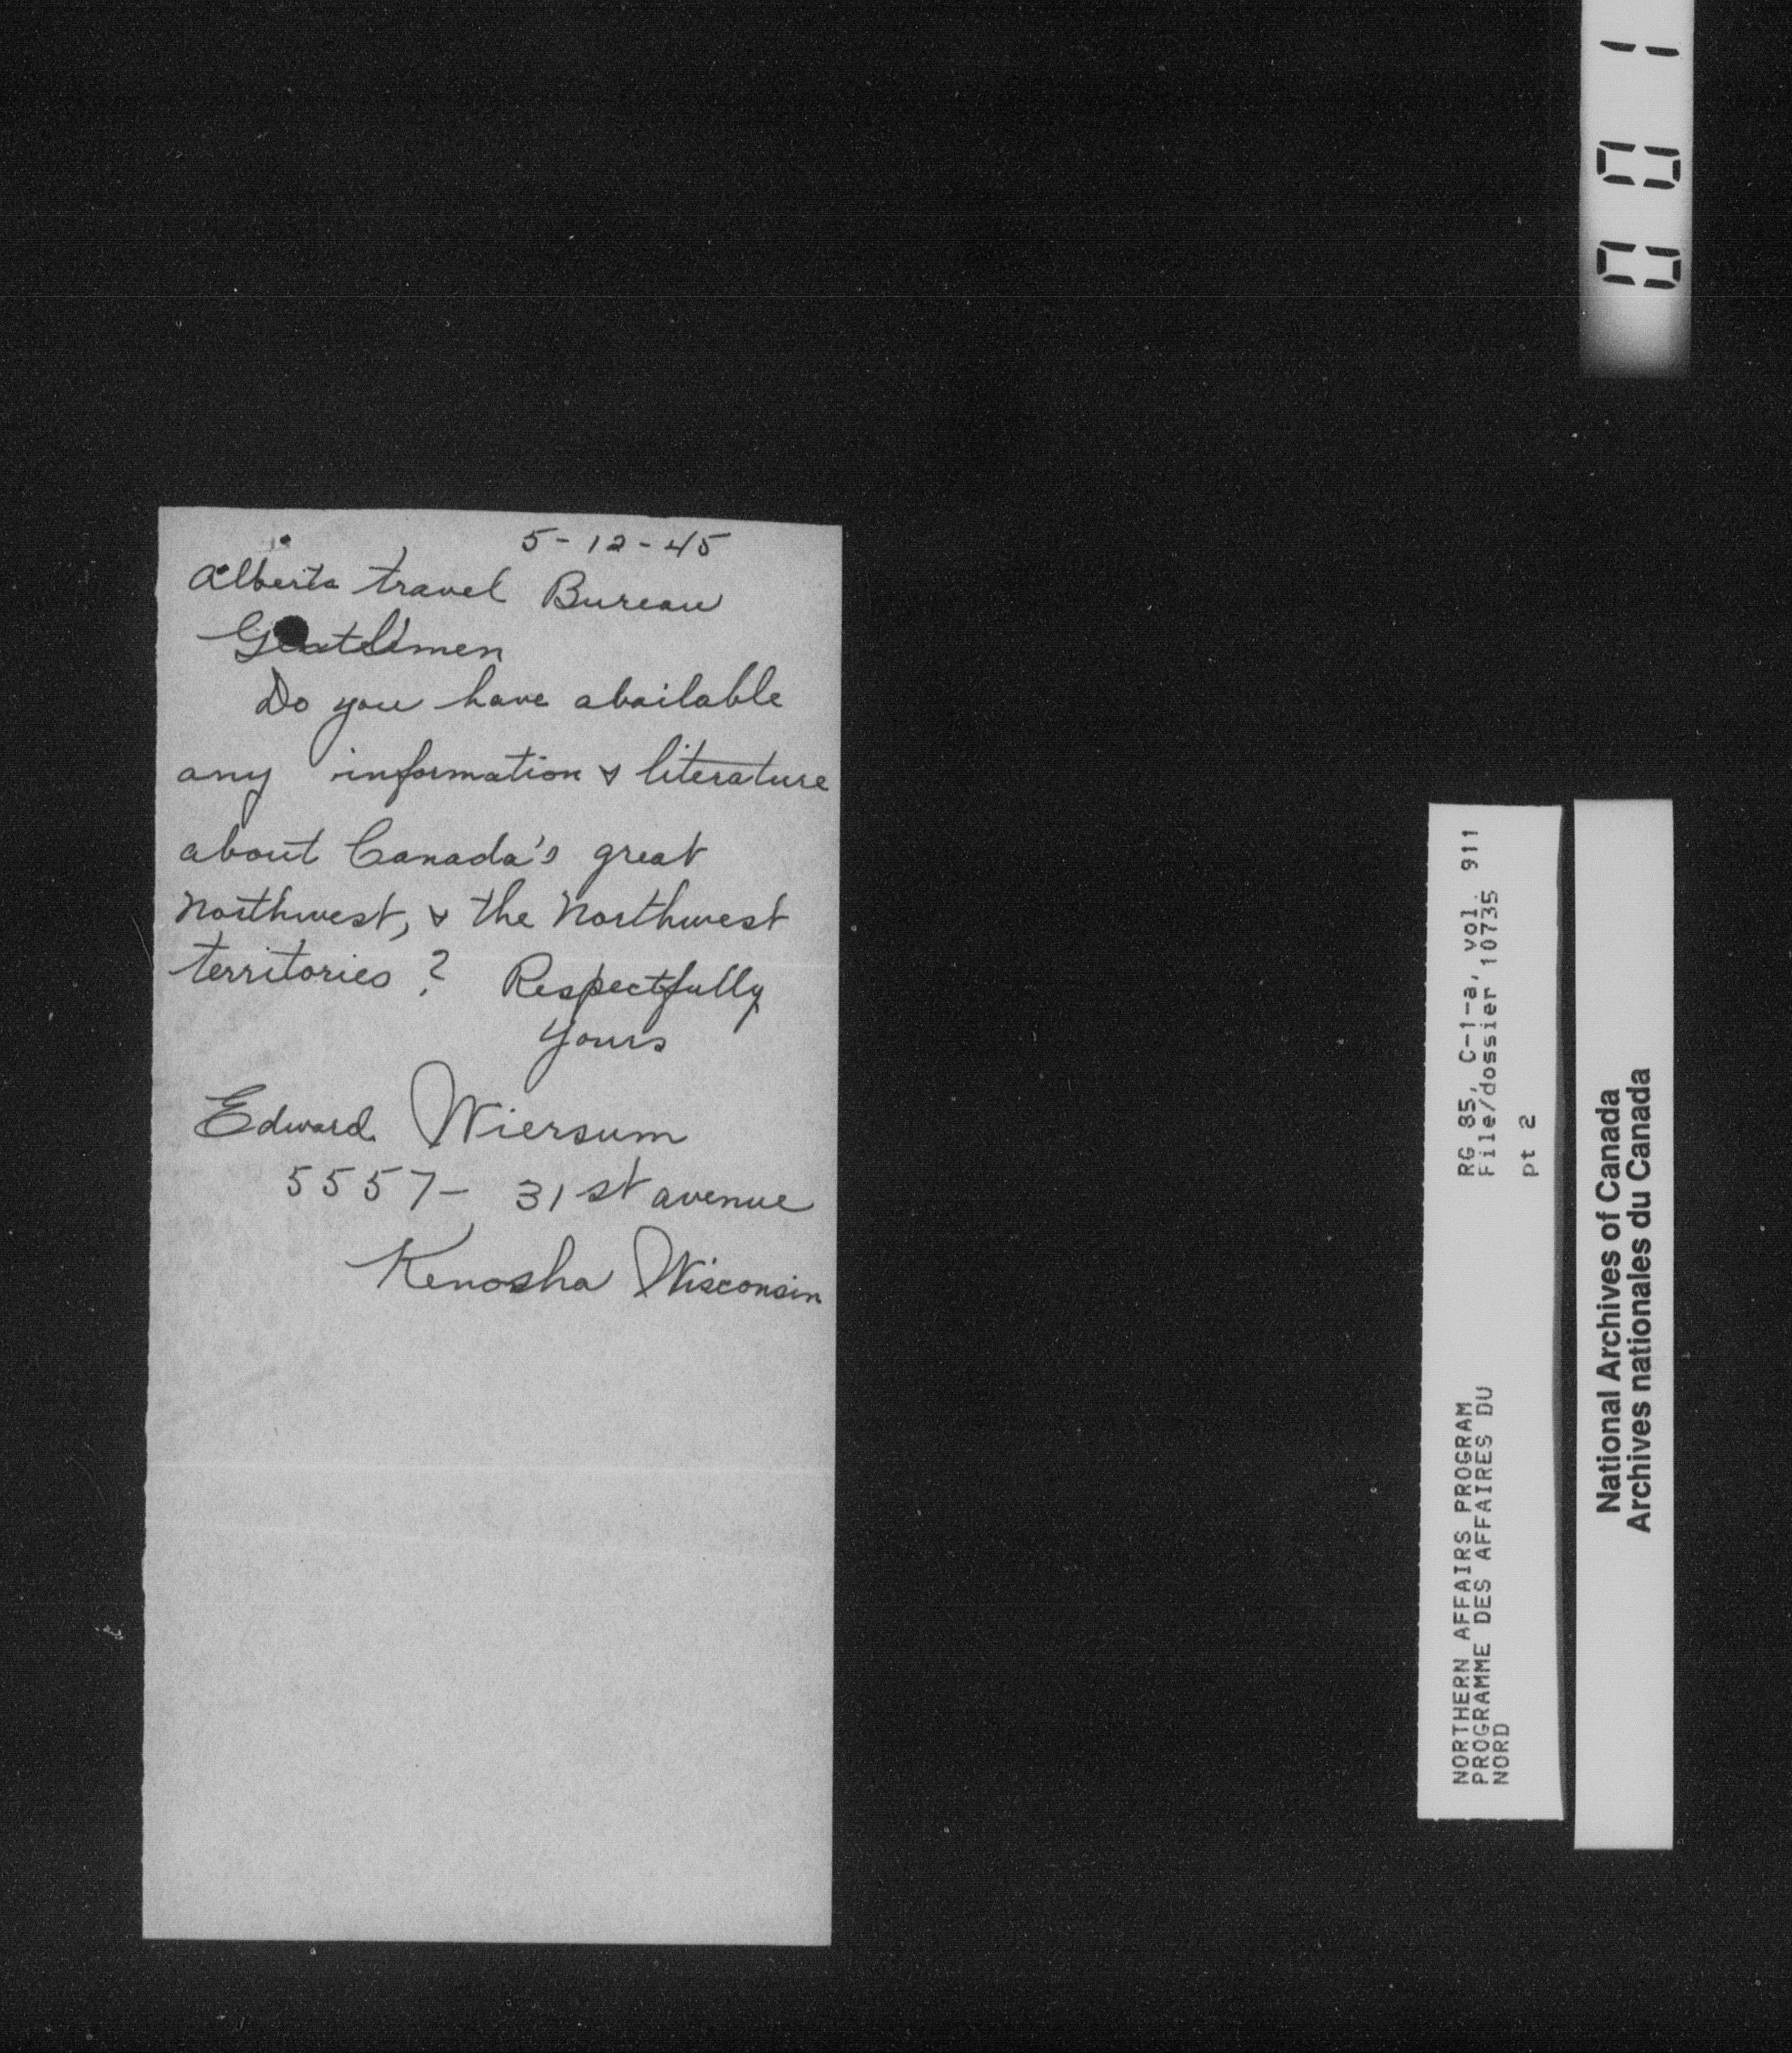 5-12-45
Alberta travel Bureau
Gentelmen
Do you have abailable
any information & literature
about Canada's great
Northwest, & the Northwest
territories? Respectfully
Yours
Edward Wiersum
5557- 31st avenue
Kenosha Wisconsin
RG 85, C-1-a, vol. 911
File/dossier 10735
pt 2
NORTHERN AFFAIRS PROGRAM
PROGRAMME DES AFFAIRES DU
NORD
National Archives of Canada
Archives nationales du Canada
001